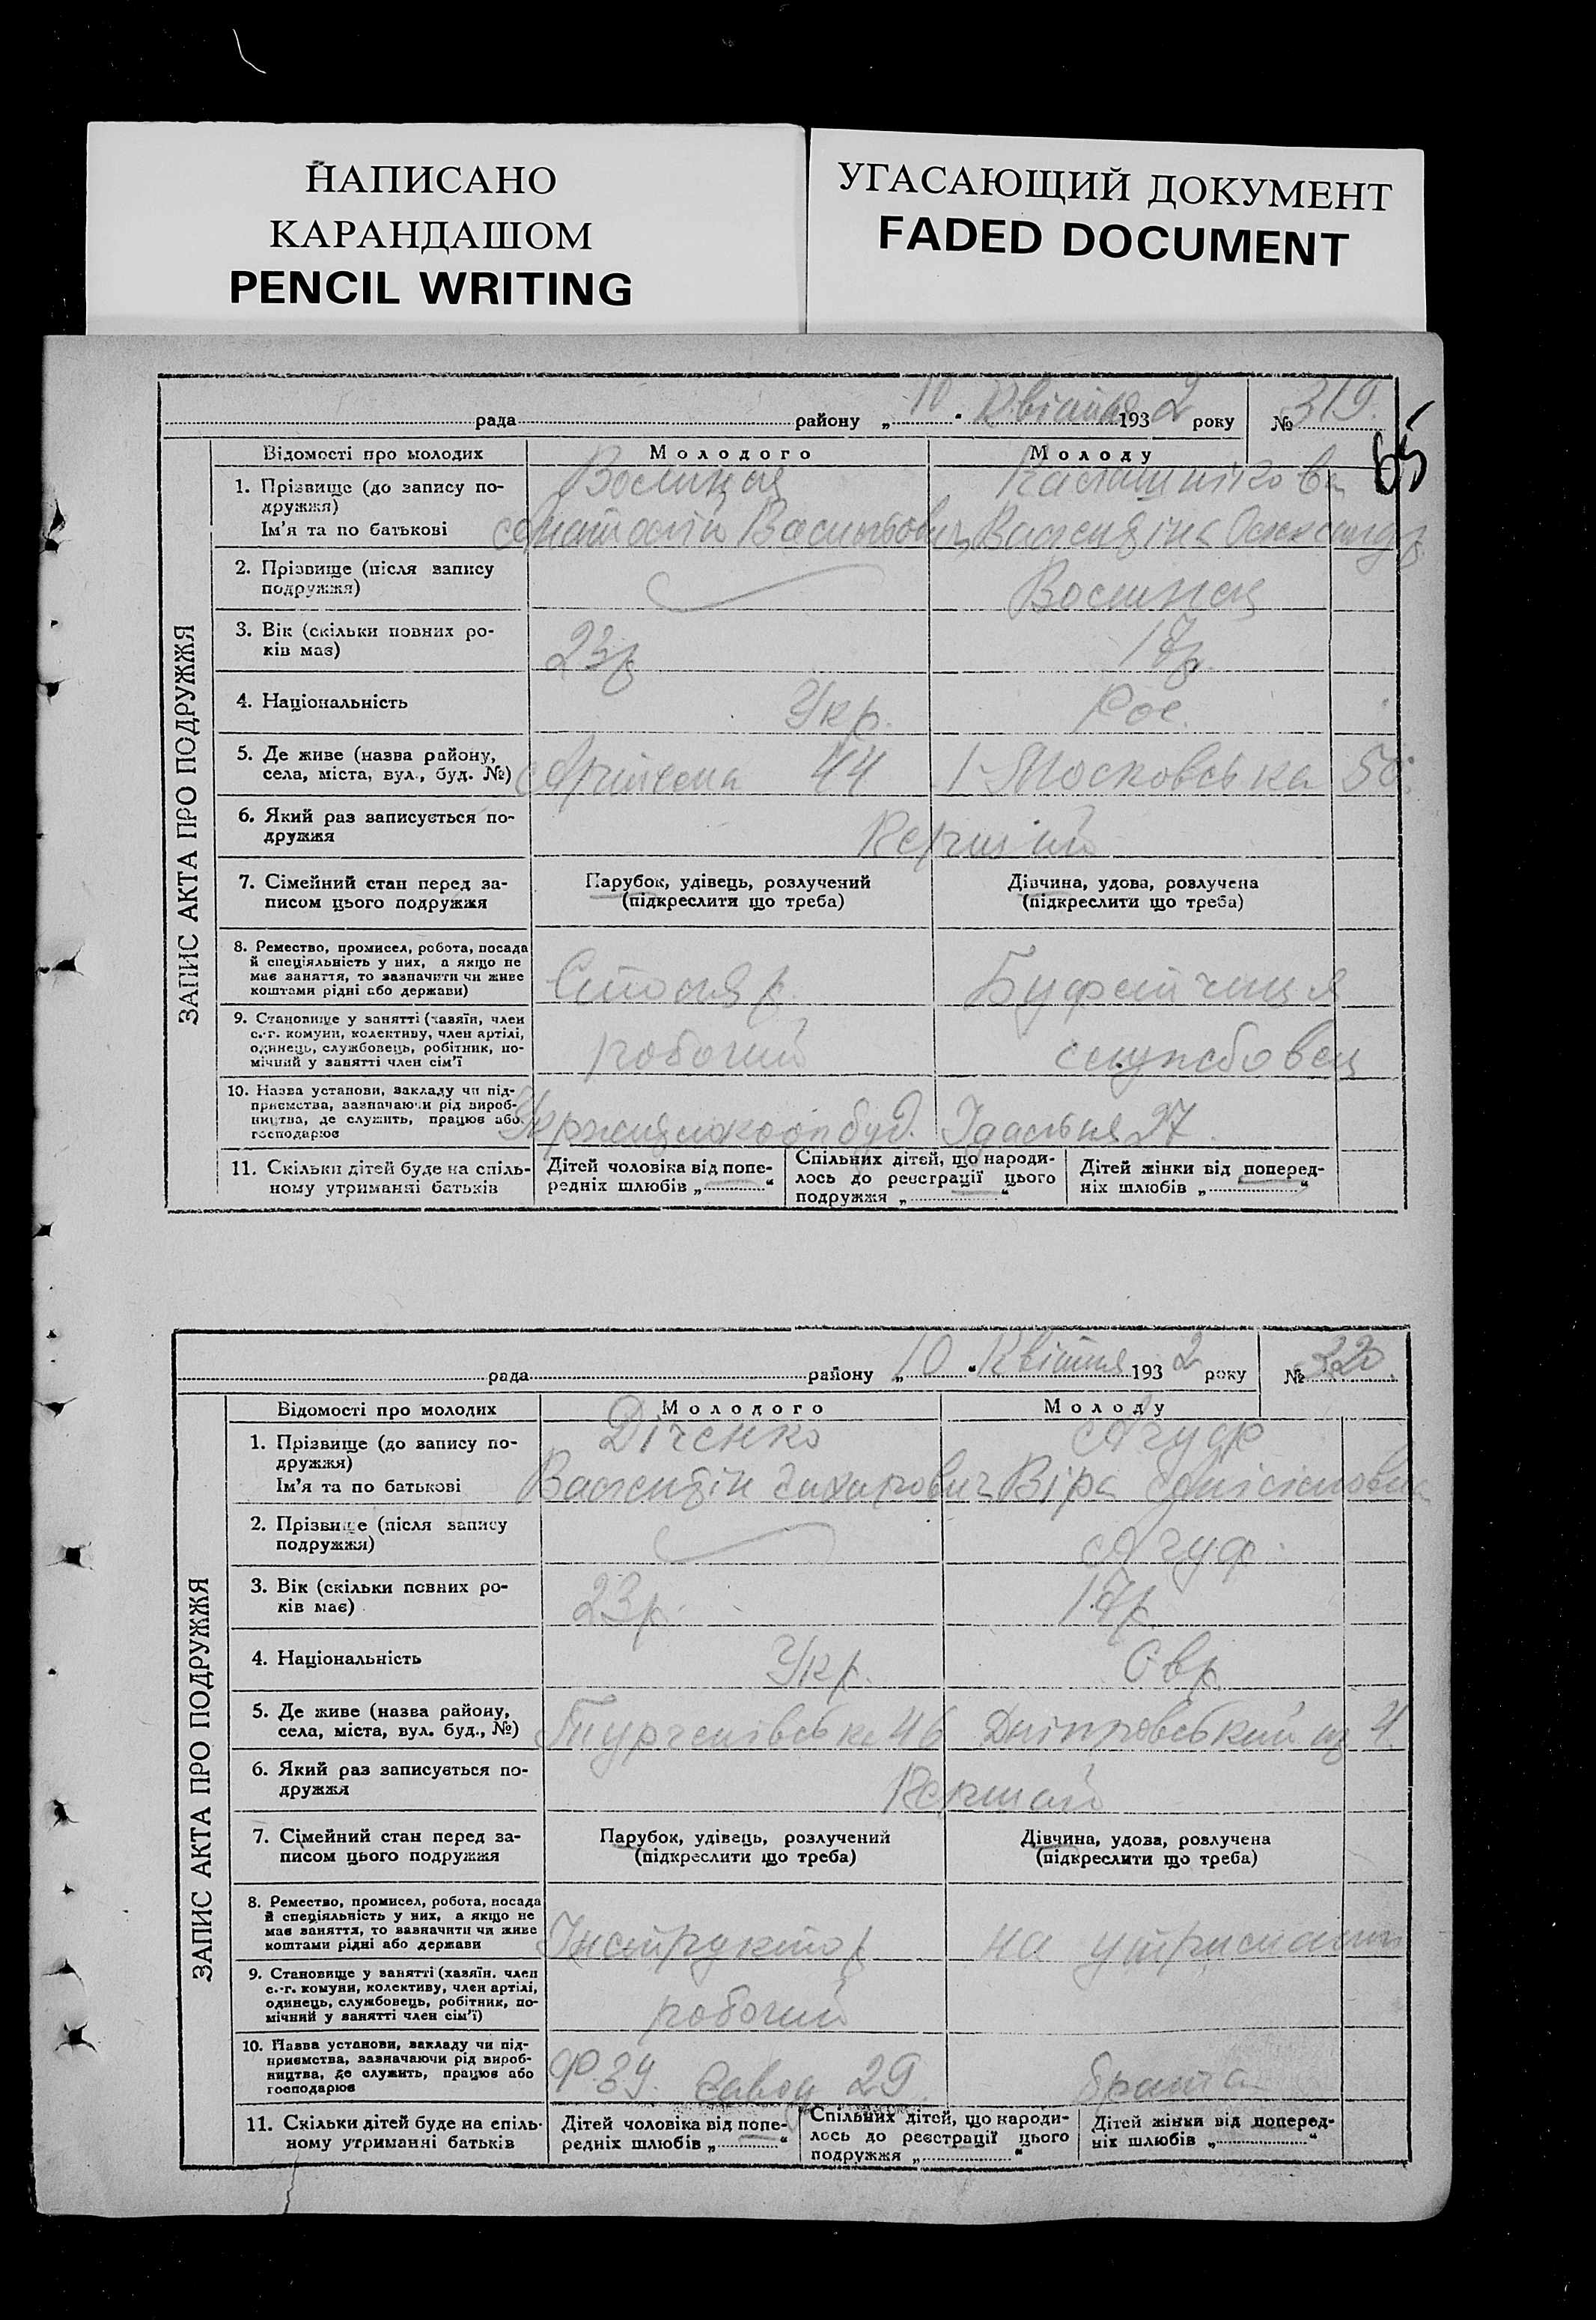 НАПИСАНО
КАРАНДАШОМ
PENCIL WRITING
УГАСАЮЩИЙ ДОКУМЕНТ
FADED DOCUMENT
рада района „ 10 " Квітня 1932 року № 319.
65
ЗАПИС АКТА ПРО ПОДРУЖЖЯ
Відомості про молодих Молодого Молоду
1. Прізвище (до запису по-
дружжя)
Ім'я та по батькові
Анатолій Васильович Валентіна Олександр
2. Прізвище (після запису
подружжя)
3. Вік (скільки повних ро-
ків має)
23р
4. Національність Укр. Рос.
5. Де живе (назва району,
села, міста, вул., буд. №) Артема 44 1-Московська
6. Який раз записується по-
дружжя
Перший
7. Сімейний стан перед за-
писом цього подружжя
Парубок, удівець, розлучений
(підкреслити що треба)
Дівчина, удова, розлучена
(підкреслити що треба)
8. Ремество, промисел, робота, посада
й спеціяльність у них, а якщо не
має заняття, то зазначити чи живе
коштами рідні або держави)
Столяр. Буфетчиця
9. Становище у занятті (хавяїн, член
с.-г. комуни, колективу, член артілі,
одинець, службовець, робітник, по-
мічний у занятті член сім'ї
робочий службовец
10. Назва установи, закладу чи під-
приємства, зазначаючи рід вироб-
ництва, де служить, працює або
господарює
Їдальня 27.
11. Скільки дітей буде на спіль-
ному утриманні батьків
Дітей чоловіка від попе-
редніх шлюбів „ "
Спільних дітей, що народи-
лось до реєстрації цього
подружжя „ "
Дітей жінки від поперед-
ніх шлюбів „ "
рада району „ 10 " Квітня 1932 року № 320.
ЗАПИС АКТА ПРО ПОДРУЖЖЯ
Відомості про молодих Молодого Молоду
1. Прізвище (до запису по-
дружжя)
Діченко Агуф
Ім'я та по батькові
Валентін Захарович Віра
2. Прізвище (після запису
подружжя)
Агуф.
3. Вік (скільки повних ро-
ків має)
23р.
4. Національність Укр. Євр
5. Де живе (назва району,
села, міста, вул. буд., №) 46 Дніпровський 4.
6. Який раз записується по-
дружжя
Перший
7. Сімейний стан перед за-
писом цього подружжя
Парубок, удівець, розлучений
(підкреслити що треба)
Дівчина, удова, розлучена
(підкреслити що треба)
8. Ремество, промисел, робота, посада
й спеціяльність у них, а якщо не
має заняття, то зазначити чи живе
коштами рідні або держави
Інструктор на утриманні
9. Становище у занятті (хазяїн. член
с.-г. комуни, колективу, член артілі,
одинець, службовець, робітник, по-
мічний у занятті член сім'ї)
робочий
10. Назва установи, закладу чи під-
приємства, зазначаючи рід вироб-
ництва, де служить, працює або
господарює
завод 29. брата
11. Скільки дітей буде на спіль-
ному утриманні батьків
Дітей чоловіка від попе-
редніх шлюбів „ "
Спільних дітей, що народи-
лось до реєстрації цього
подружжя „ "
Дітей жінки від поперед-
ніх шлюбів „ "